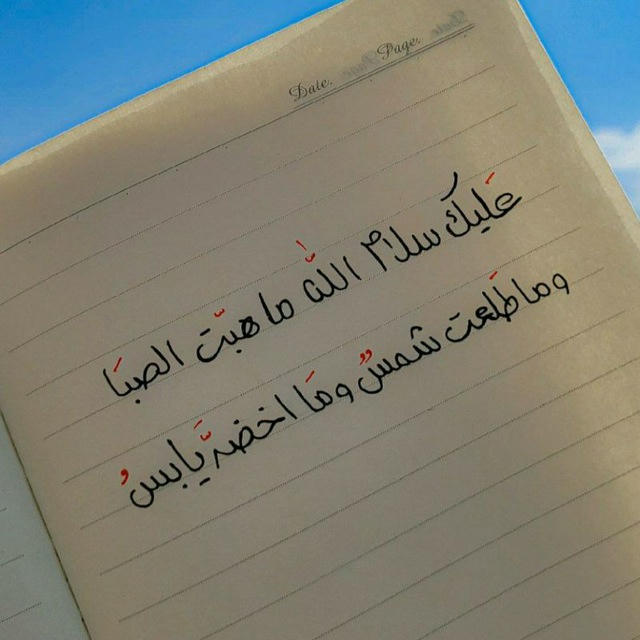 Date. Page.
عَليك سلام اللّٰه ما هبّت الصبَا
وما طَلعت شمسٌ ومَا اخضرَّ يَابسُ